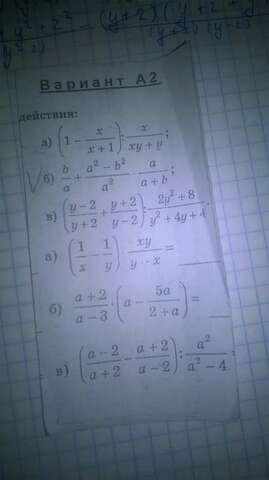 Вариант А2
действия:
а) (1 - x/(x+1)) : x/(xy+y);
б) b/a + (a² - b²)/a² · a/(a+b);
в) ((y-2)/(y+2) + (y+2)/(y-2)) : (2y²+8)/(y²+4y+4).
а) (1/x - 1/y) · xy/(y-x) =
б) (a+2)/(a-3) · (a - 5a/(2+a)) =
в) ((a-2)/(a+2) - (a+2)/(a-2)) : a²/(a²-4).